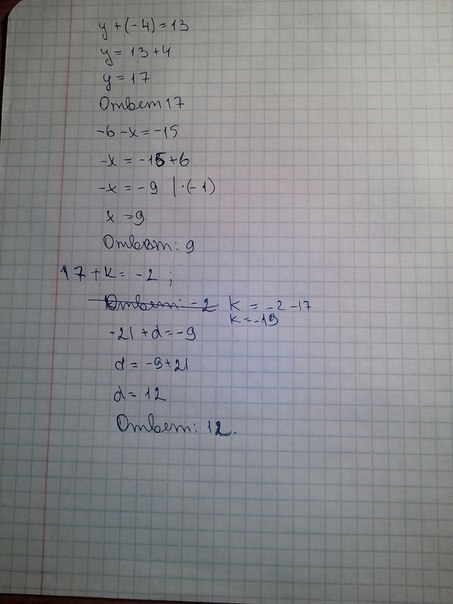 y + (-4) = 13
y = 13 + 4
y = 17
Ответ 17
-6 - x = -15
-x = -15 + 6
-x = -9 | · (-1)
x = 9
Ответ: 9
17 + k = -2 ;
Ответ: -2 k = -2 - 17
k = -19
-21 + d = -9
d = -9 + 21
d = 12
Ответ: 12.